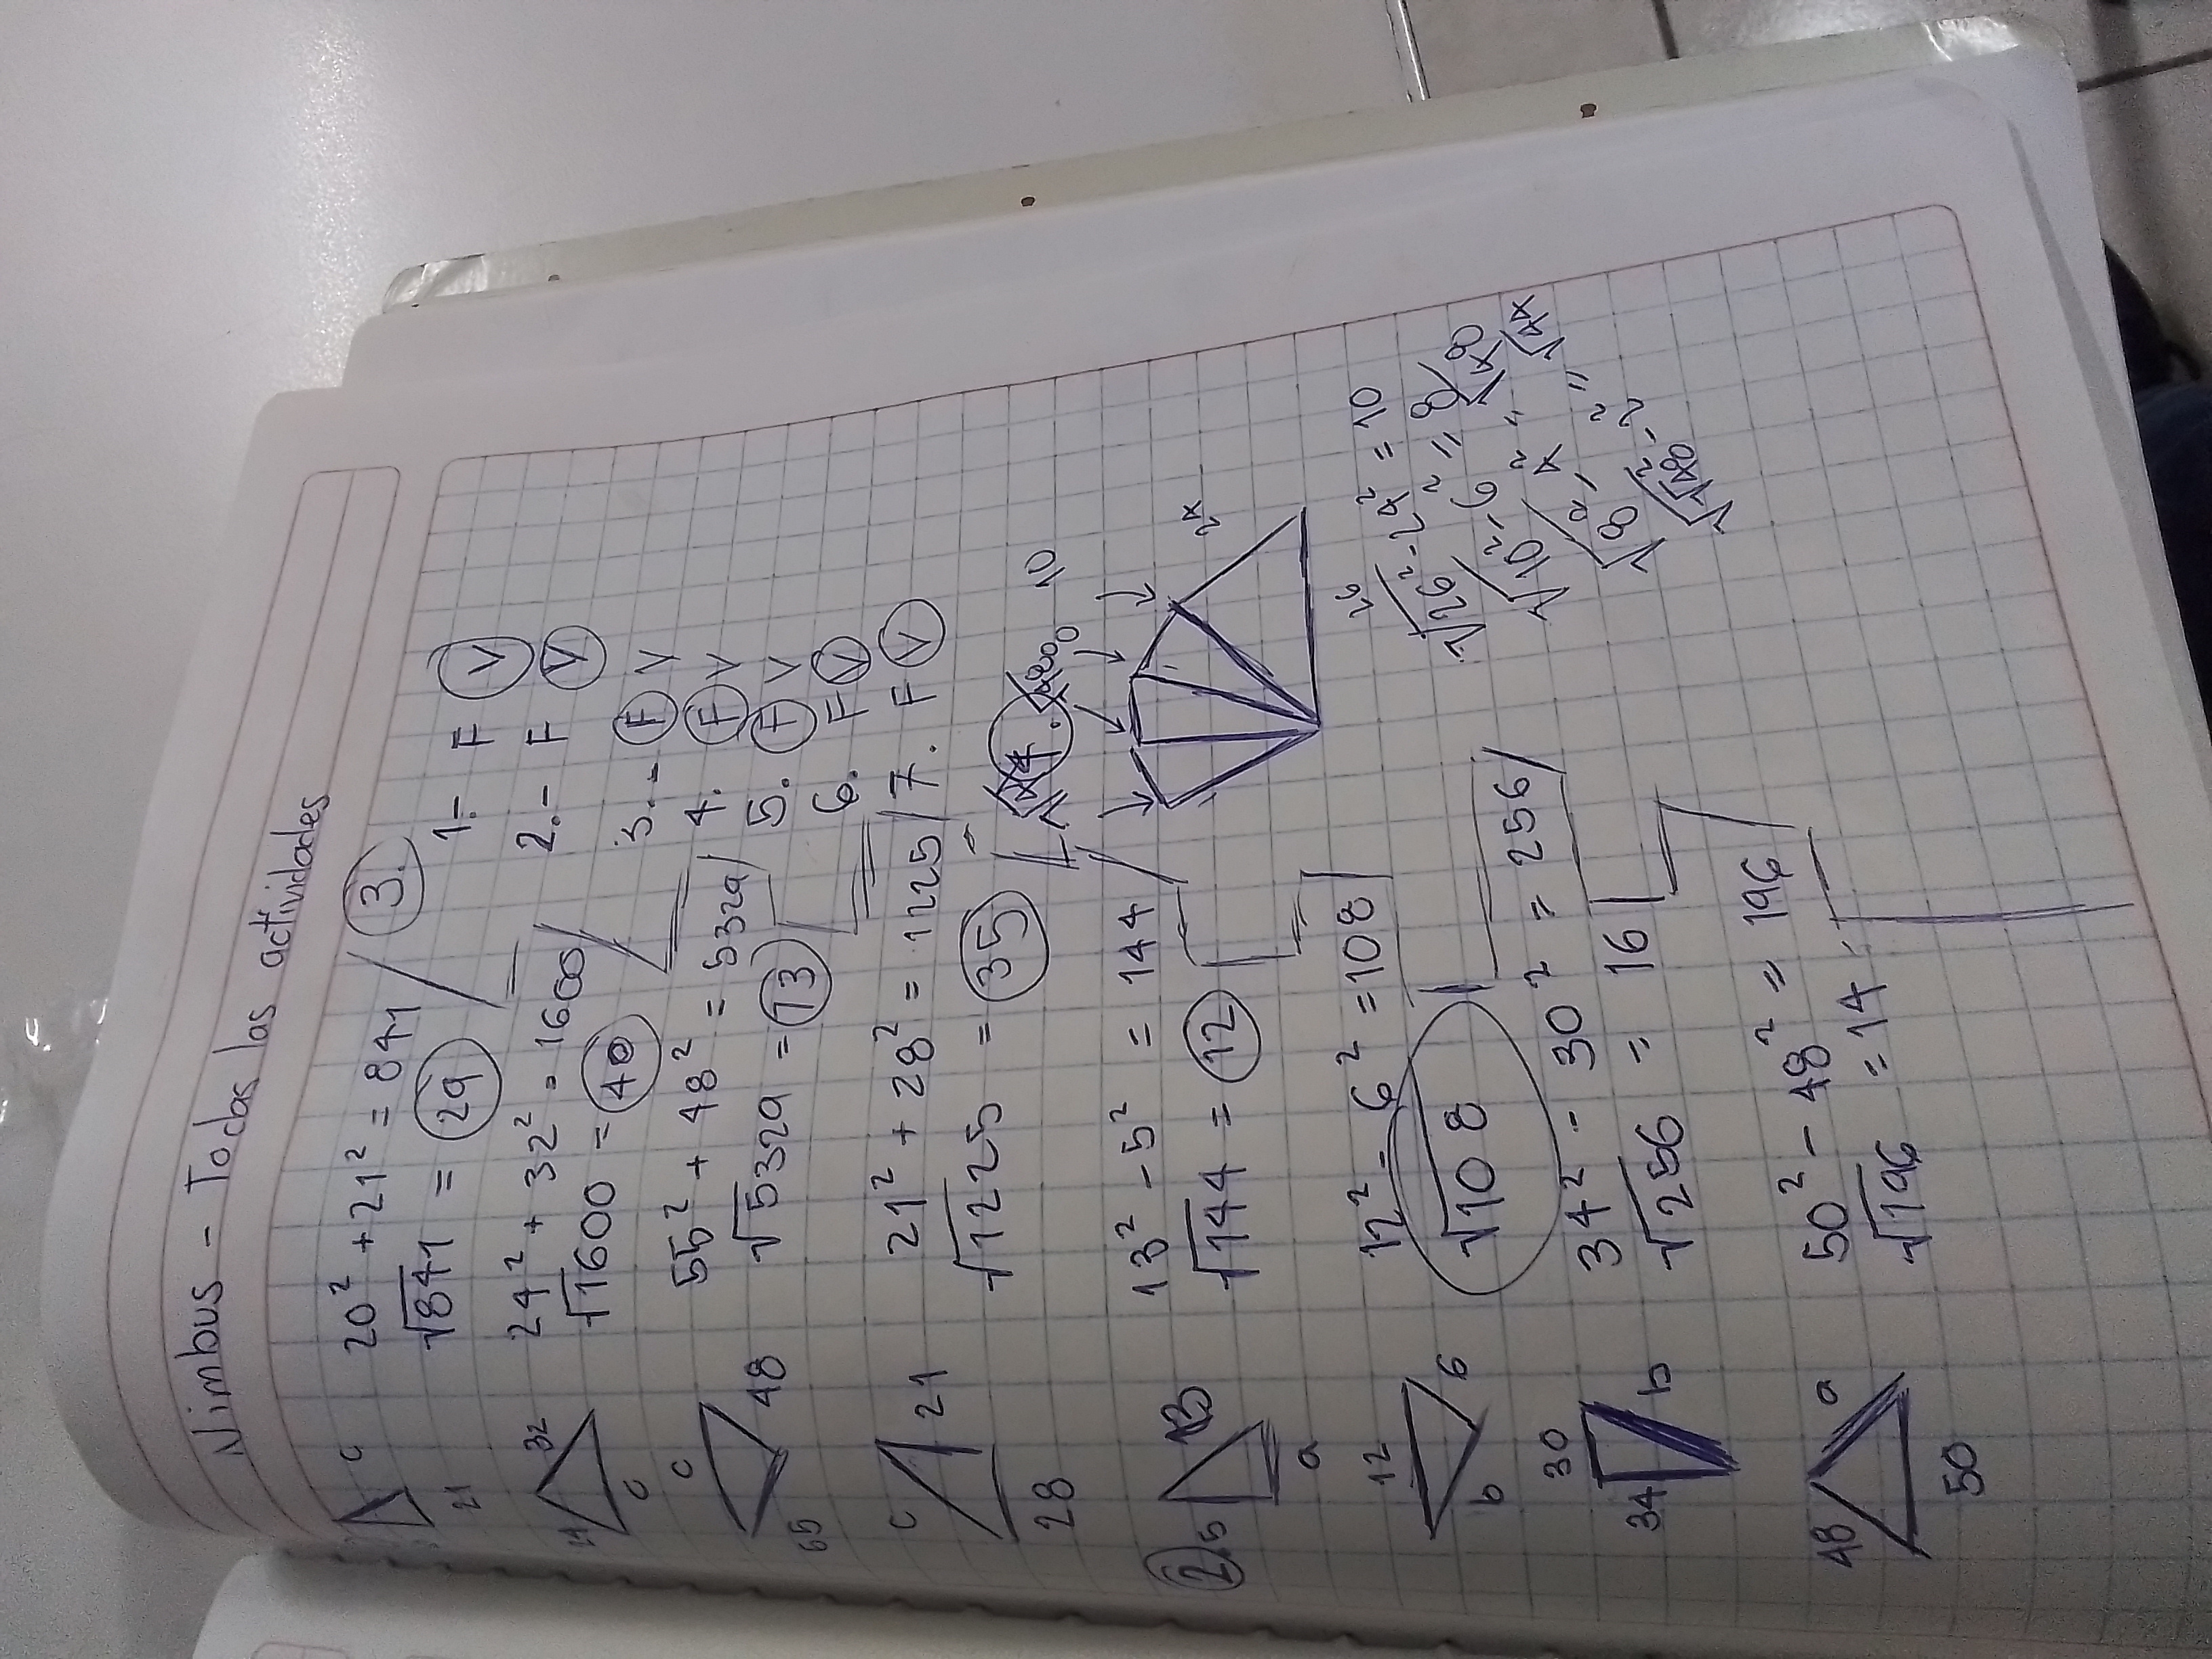 Nimbus - Todas las actividades
c
21
20² + 21² = 841
√841 = 29
32
c
24² + 32² = 1600
√1600 = 40
c
48
55
55² + 48² = 5329
√5329 = 73
c
21
28
21² + 28² = 1225
√1225 = 35
2
5
13
a
13² - 5² = 144
√144 = 12
12
6
b
12² - 6² = 108
√108
30
34
b
34² - 30² = 256
√256 = 16
48
a
50
50² - 48² = 196
√196 = 14
3.
1.- F V
2.- F V
3.- F V
4. F V
5. F V
6. F V
7. F V
10
24
26
√26² - 24² = 10
√10² - 6² = 8